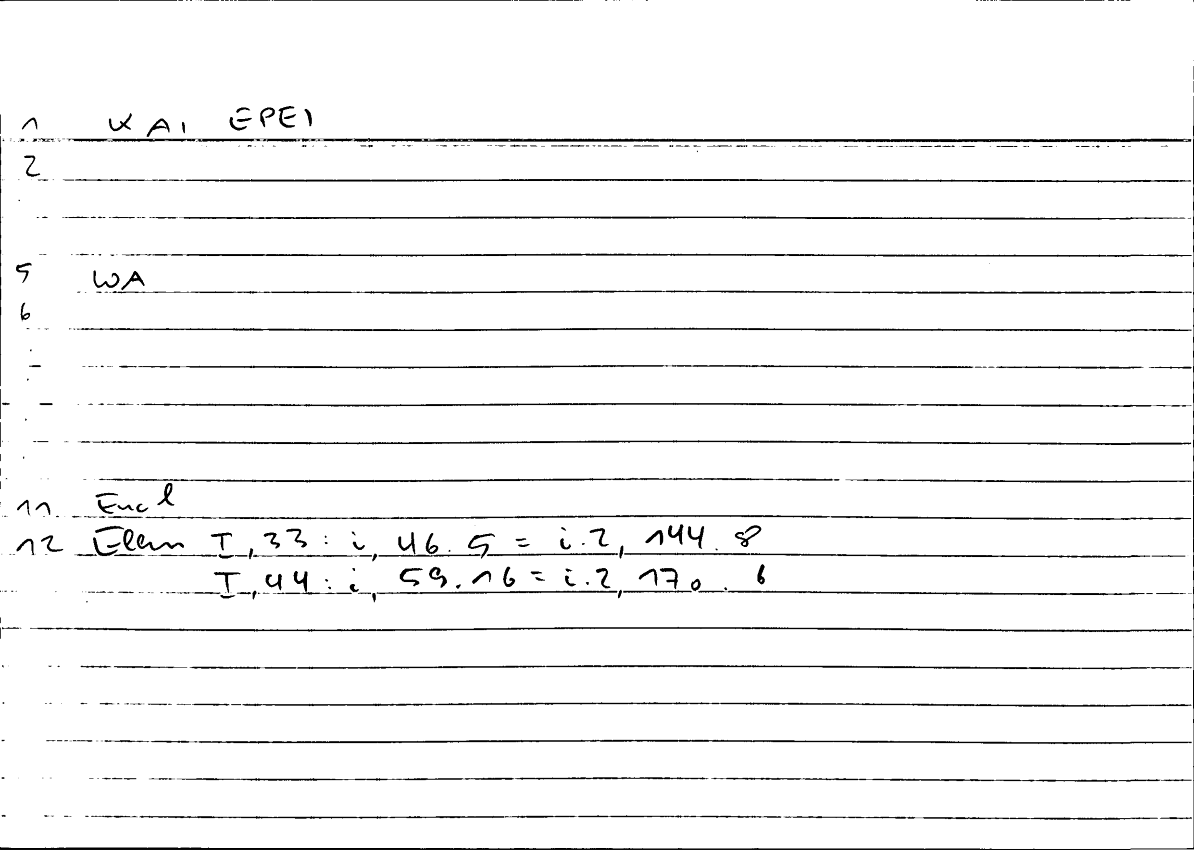 1 KAI EPEI
2
5 WA
6
11 Eucl
12 Elem I,33: i, 46.5 = i.2, 144.8
I,44: i, 59.16 = i.2, 170.6